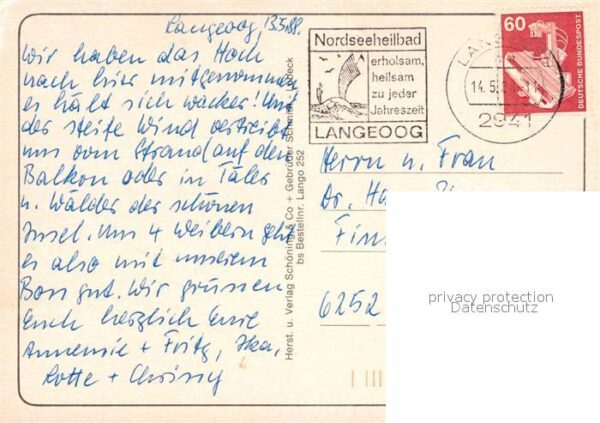 Langeoog, 13.5.88.
Wir haben das Hoch
nach hier mitgenommen
es hält sich wacker! Nur
der steife Wind vertreibt
uns vom Strand auf den
Balkon oder in Täler
u. Wälder der schönen
Insel. Uns 4 Weibern geht
es also mit unserem
Boss gut. Wir grüssen
Euch herzlich Eure
Annemie + Fritz,
Lotte + Chrissy
Herst. u. Verlag Schöning & Co + Gebrüder Schmidt, Lübeck
bs Bestellnr. Lango 252
Nordseeheilbad
erholsam,
heilsam
zu jeder
Jahreszeit
LANGEOOG
14.5.
2941
60
DEUTSCHE BUNDESPOST
Herrn u. Frau
Dr.
6252
privacy protection
Datenschutz